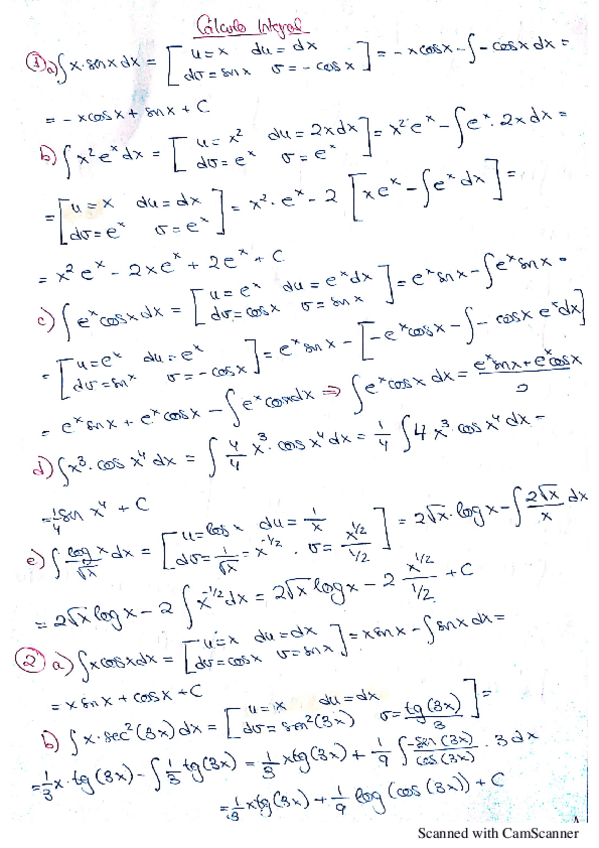 Cálculo Integral
① a) ∫ x · sen x dx = [u = x du = dx dv = sen x v = - cos x] = - x cos x - ∫ - cos x dx =
= - x cos x + sen x + C
b) ∫ x² eˣ dx = [u = x² du = 2x dx dv = eˣ v = eˣ] = x² eˣ - ∫ eˣ · 2x dx =
= [u = x du = dx dv = eˣ v = eˣ] = x² · eˣ - 2 [x eˣ - ∫ eˣ dx] =
= x² eˣ - 2x eˣ + 2 eˣ + C
c) ∫ eˣ cos x dx = [u = eˣ du = eˣ dx dv = cos x v = sen x] = eˣ sen x - ∫ eˣ sen x =
= [u = eˣ du = eˣ dv = sen x v = - cos x] = eˣ sen x - [- eˣ cos x - ∫ - cos x eˣ dx]
= eˣ sen x + eˣ cos x - ∫ eˣ cos x dx ⇒ ∫ eˣ cos x dx = (eˣ sen x + eˣ cos x)/2
d) ∫ x³ · cos x⁴ dx = ∫ 4/4 x³ · cos x⁴ dx = 1/4 ∫ 4 x³ · cos x⁴ dx =
= 1/4 sen x⁴ + C
e) ∫ log x/√x dx = [u = log x du = 1/x dv = 1/√x = x^(-1/2) · v = x^(1/2)/(1/2)] = 2√x · log x - ∫ 2√x/x dx
= 2√x log x - 2 ∫ x^(-1/2) dx = 2√x log x - 2 x^(1/2)/(1/2) + C
② a) ∫ x cos x dx = [u = x du = dx dv = cos x v = sen x] = x sen x - ∫ sen x dx =
= x sen x + cos x + C
b) ∫ x · sec² (3x) dx = [u = x du = dx dv = sen² (3x) v = tg (3x)/3] =
= 1/3 x · tg (3x) - ∫ 1/3 tg (3x) = 1/3 x tg (3x) + 1/9 ∫ -sen (3x)/cos (3x) · 3 dx
= 1/3 x tg (3x) + 1/9 log (cos (3x)) + C
Scanned with CamScanner